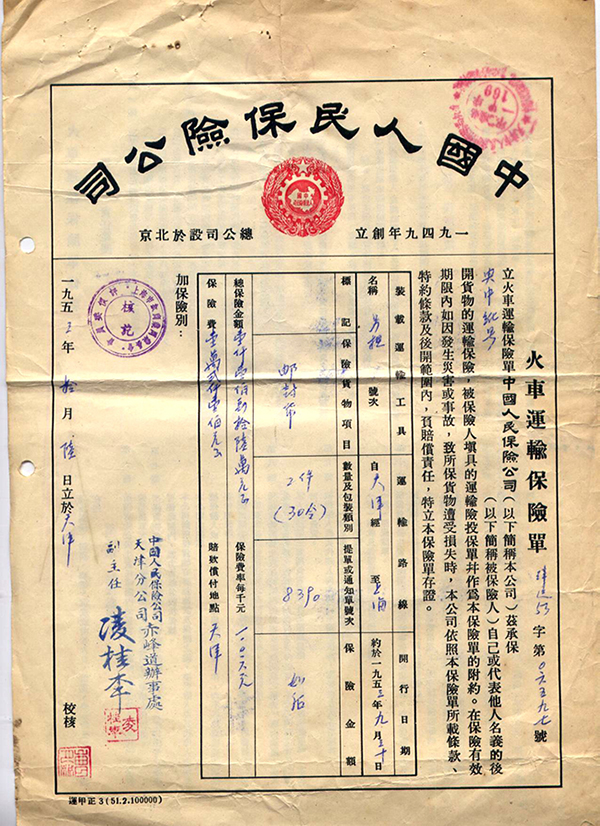 中國人民保險公司
一九四九年創立 總公司設於北京
火車運輸保險單 字第0六五九七號
立火車運輸保險單中國人民保險公司（以下簡稱本公司）茲承保
（以下簡稱被保險人）自己或代表他人名義的後
開貨物的運輸保險，被保險人填具的運輸險投保單幷作爲本保險單的附約。在保險有效
期限內如因發生災害或事故，致所保貨物遭受損失時，本公司依照本保險單所載條款、
特約條款及後開範圍內，負賠償責任，特立本保險單存證。
裝載運輸工具 運輸路線 開行日期
名稱 號次 自天津經 至上海 約於一九五三年九月三十日
標記 保險貨物項目 數量及包裝類別 提單或通知單號次 保險金額
2件（30令） 8390
總保險金額 保險費率每千元
保險費 賠款償付地點 天津
加保險別：
一九五三年拾月陸日立於天津
中國人民保險公司
天津分公司赤峰道辦事處
副主任 凌桂李
校核
運甲正3(51.2.100000)